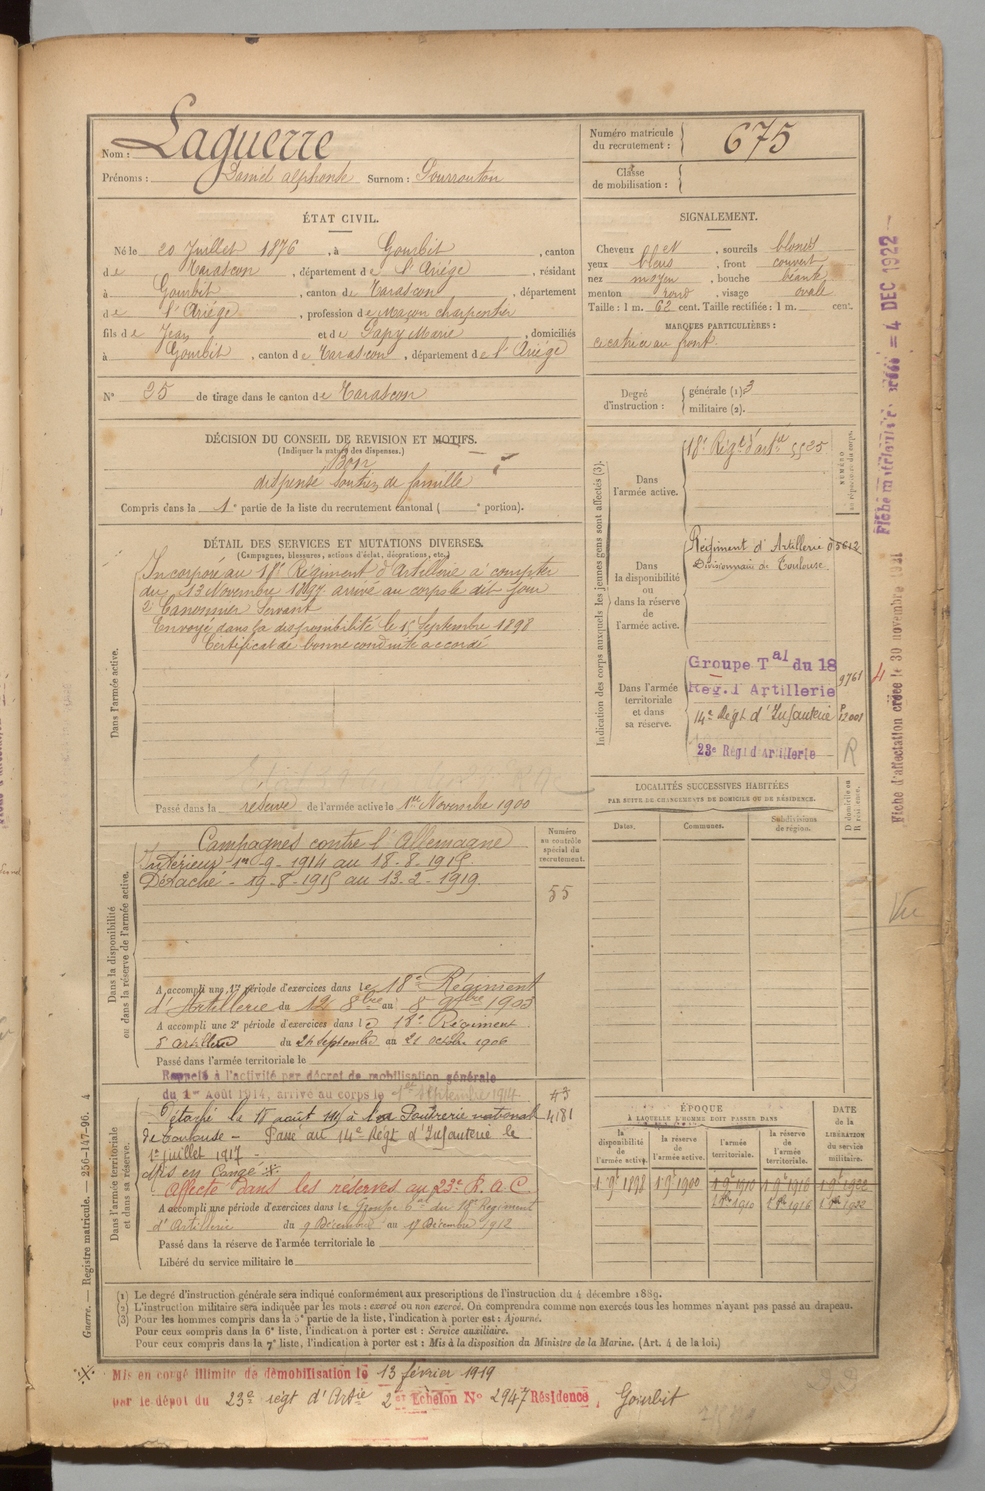 Nom : Laguerre
Prénoms : Daniel alphonse Surnom : Gourrouton
Numéro matricule du recrutement : 675
Classe de mobilisation :
ÉTAT CIVIL.
Né le 20 Juillet 1876, à Gourbit, canton
de Tarascon, département de l'Ariége, résidant
à Gourbit, canton de Tarascon, département
de l'Ariége, profession de Maçon charpentier
fils de Jean et de Papy Marie, domiciliés
à Gourbit, canton de Tarascon, département de l'Ariége
N° 25 de tirage dans le canton de Tarascon
SIGNALEMENT.
Cheveux , sourcils blonds
yeux bleus, front couvert
nez moyen, bouche béante
menton rond, visage ovale
Taille : 1 m. 62 cent. Taille rectifiée : 1 m. cent.
MARQUES PARTICULIÈRES :
cicatrice au front.
Degré d'instruction : générale (1) 3
militaire (2).
DÉCISION DU CONSEIL DE REVISION ET MOTIFS.
(Indiquer la nature des dispenses.)
Bon
dispensé soutien de famille
Compris dans la 1e partie de la liste du recrutement cantonal ( e portion).
DÉTAIL DES SERVICES ET MUTATIONS DIVERSES.
(Campagnes, blessures, actions d'éclat, décorations, etc.)
Dans l'armée active.
Incorporé au 18e Régiment d'Artillerie à compter
du 13 Novembre 1897 arrivé au corps le dit jour
2e Canonnier Servant
Envoyé dans la disponibilité le 15 Septembre 1898
Certificat de bonne conduite accordé
Passé dans la réserve de l'armée active le 1er Novembre 1900
Indication des corps auxquels les jeunes gens sont affectés (3).
NUMÉRO au répertoire du corps.
Dans l'armée active.
18e Régt d'artie 5525
Dans la disponibilité ou dans la réserve de l'armée active.
Régiment d'Artillerie 05612
Divisionnaire de Toulouse
Dans l'armée territoriale et dans sa réserve.
Groupe Tal du 18
Rég. d'Artillerie 9761
14e Régt d'Infanterie P 12001
23e Régt d'Artillerie R
LOCALITÉS SUCCESSIVES HABITÉES
PAR SUITE DE CHANGEMENTS DE DOMICILE OU DE RÉSIDENCE.
Dates. Communes. Subdivisions de région. D domicile ou R résidence.
Dans la disponibilité ou dans la réserve de l'armée active.
Numéro au contrôle spécial du recrutement.
55
Campagnes contre l'Allemagne
Intérieur 1er-9-1914 au 18-8-1915
Détaché - 19-8-1915 au 13-2-1919.
A accompli une 1re période d'exercices dans le 18e Régiment
d'Artillerie du 12 8bre au 8 9bre 1903
A accompli une 2e période d'exercices dans le 18e Régiment
d'artillerie du 24 Septembre au 21 octobre 1906
Passé dans l'armée territoriale le
Rappelé à l'activité par décret de mobilisation générale
du 1er Août 1914, arrivé au corps le 1er Septembre 1914
43
4181
Dans l'armée territoriale et dans sa réserve.
Détaché le 18 août 1915 à la Poudrerie nationale
de Toulouse - Passé au 14e Régt d'Infanterie le
1er juillet 1917 -
Mis en Congé ※.
Affecté dans les réserves au 23e R.A.C.
A accompli une période d'exercices dans le Groupe tal du 18e Régiment
d'Artillerie du 9 Décembre au 17 Décembre 1912
Passé dans la réserve de l'armée territoriale le
Libéré du service militaire le
ÉPOQUE
À LAQUELLE L'HOMME DOIT PASSER DANS
la disponibilité de l'armée active. la réserve de l'armée active. l'armée territoriale. la réserve de l'armée territoriale.
DATE de la LIBÉRATION du service militaire.
1 9e 1898 1 9e 1900 1 9e 1910 1 9e 1916 1 9e 1922
1 8e 1910 1 8e 1916 1 8e 1922
(1) Le degré d'instruction générale sera indiqué conformément aux prescriptions de l'instruction du 4 décembre 1889.
(2) L'instruction militaire sera indiquée par les mots : exercé ou non exercé. On comprendra comme non exercés tous les hommes n'ayant pas passé au drapeau.
(3) Pour les hommes compris dans la 5e partie de la liste, l'indication à porter est : Ajourné.
Pour ceux compris dans la 6e liste, l'indication à porter est : Service auxiliaire.
Pour ceux compris dans la 7e liste, l'indication à porter est : Mis à la disposition du Ministre de la Marine. (Art. 4 de la loi.)
※ Mis en congé illimité de démobilisation le 13 février 1919
par le dépôt du 23e régt d'Artie 2e Echelon N° 2947 Résidence, Gourbit
Guerre. — Registre matricule. — 256-147-96. 4
4 DEC 1922
Fiche d'affectation créée le 30 novembre
Vu